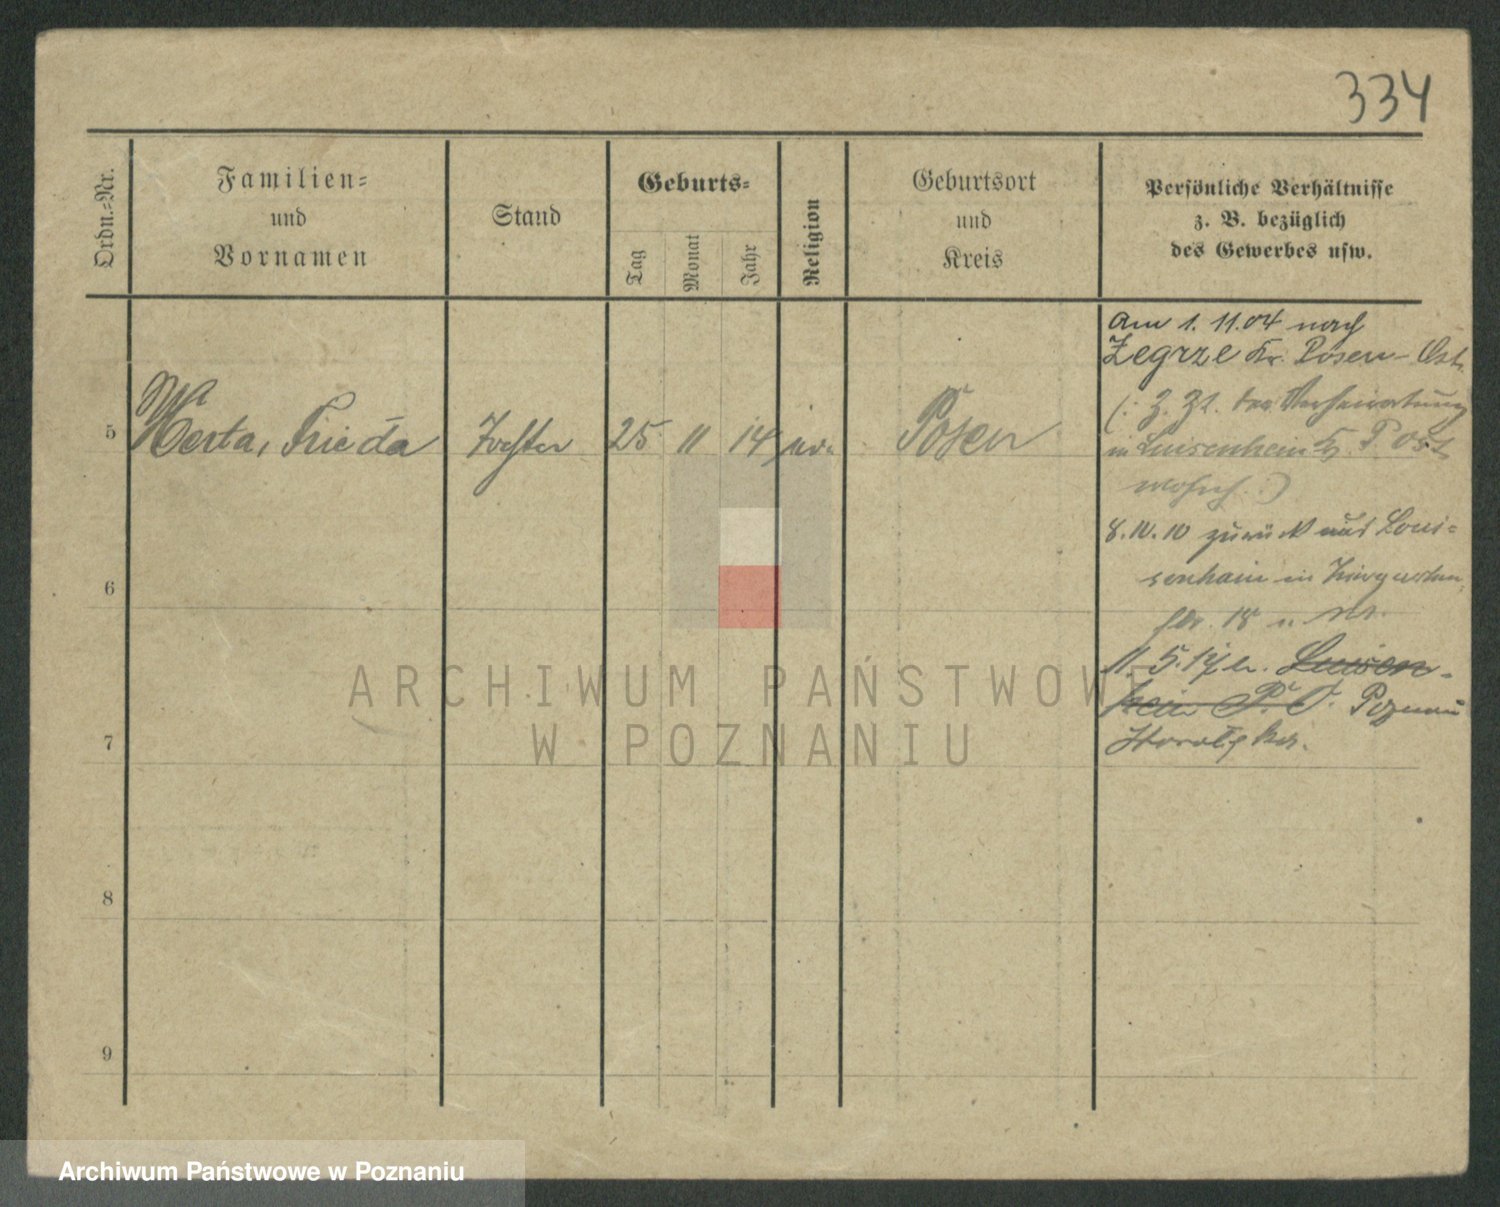 334
Ordn.=Nr.
Familien=
und
Vornamen
Stand
Geburts=
Tag
Monat
Jahr
Religion
Geburtsort
und
Kreis
Persönliche Verhältnisse
z. B. bezüglich
des Gewerbes usw.
am 1. 11. 04 nach
Zegrze Kr. Posen-Ost.
(: z. Zt. der
in Luisenhein P Ost
5
Herta, Frieda
Tochter
25
11
14
ev.
Posen
8. 10. 10 zurück aus Loui=
senhain in
6
18
11. 5. Luisen-
hein P. O. Poznań
7
8
9
ARCHIWUM PAŃSTWOWE
W POZNANIU
Archiwum Państwowe w Poznaniu